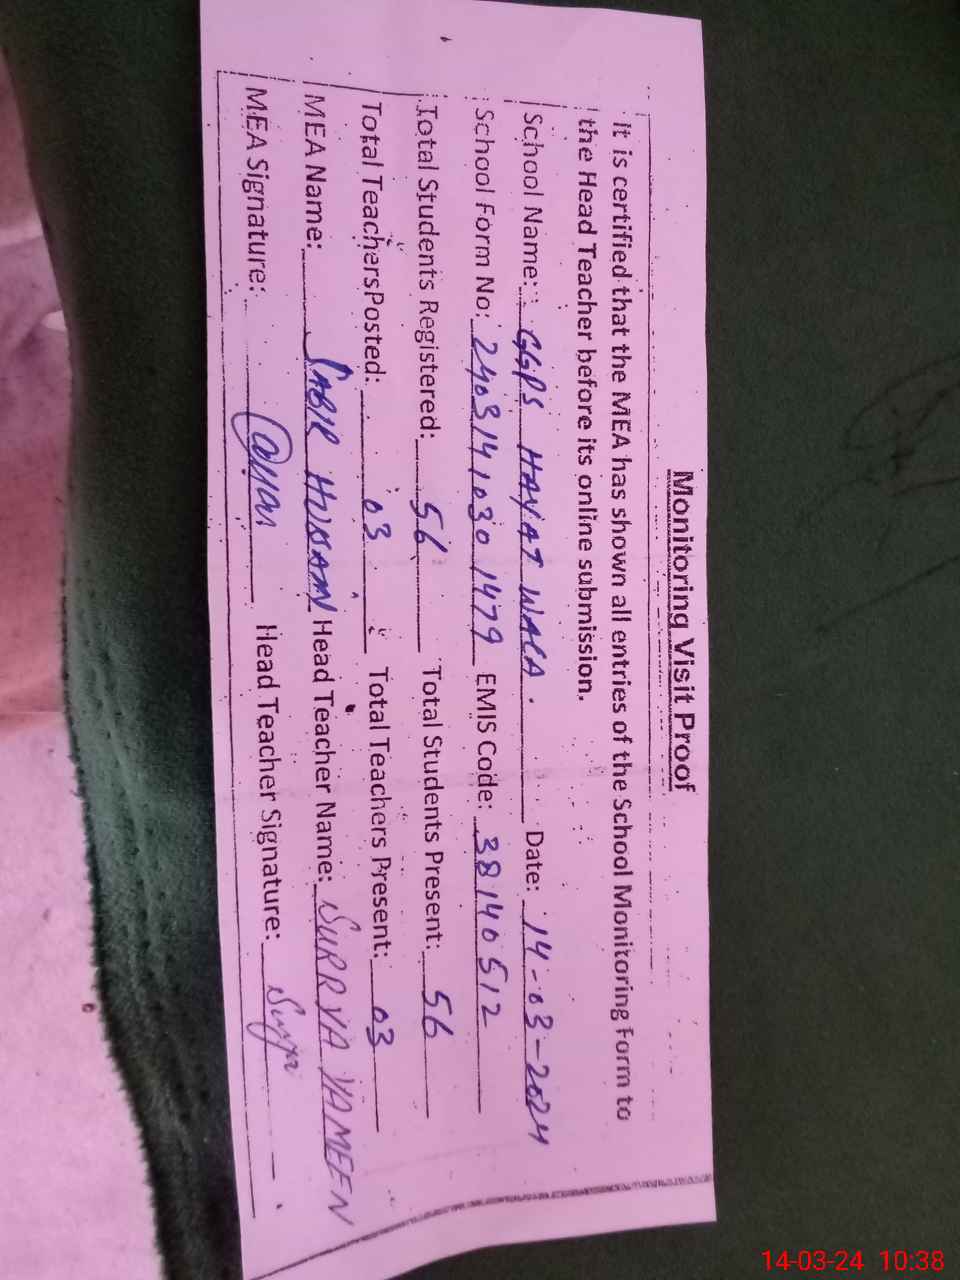 Monitoring Visit Proof
It is certified that the MEA has shown all entries of the School Monitoring Form to
the Head Teacher before its online submission.
School Name: GGPS HAYAT WALA. Date: 14-03-2024
School Form No: 24031410301479 EMIS Code: 38140512
Total Students Registered: 56 Total Students Present: 56
Total TeachersPosted: 03 Total Teachers Present: 03
MEA Name: SABIR HUSSAIN Head Teacher Name: SURRYA YAMEEN
MEA Signature: Head Teacher Signature: Surya
14-03-24 10:38